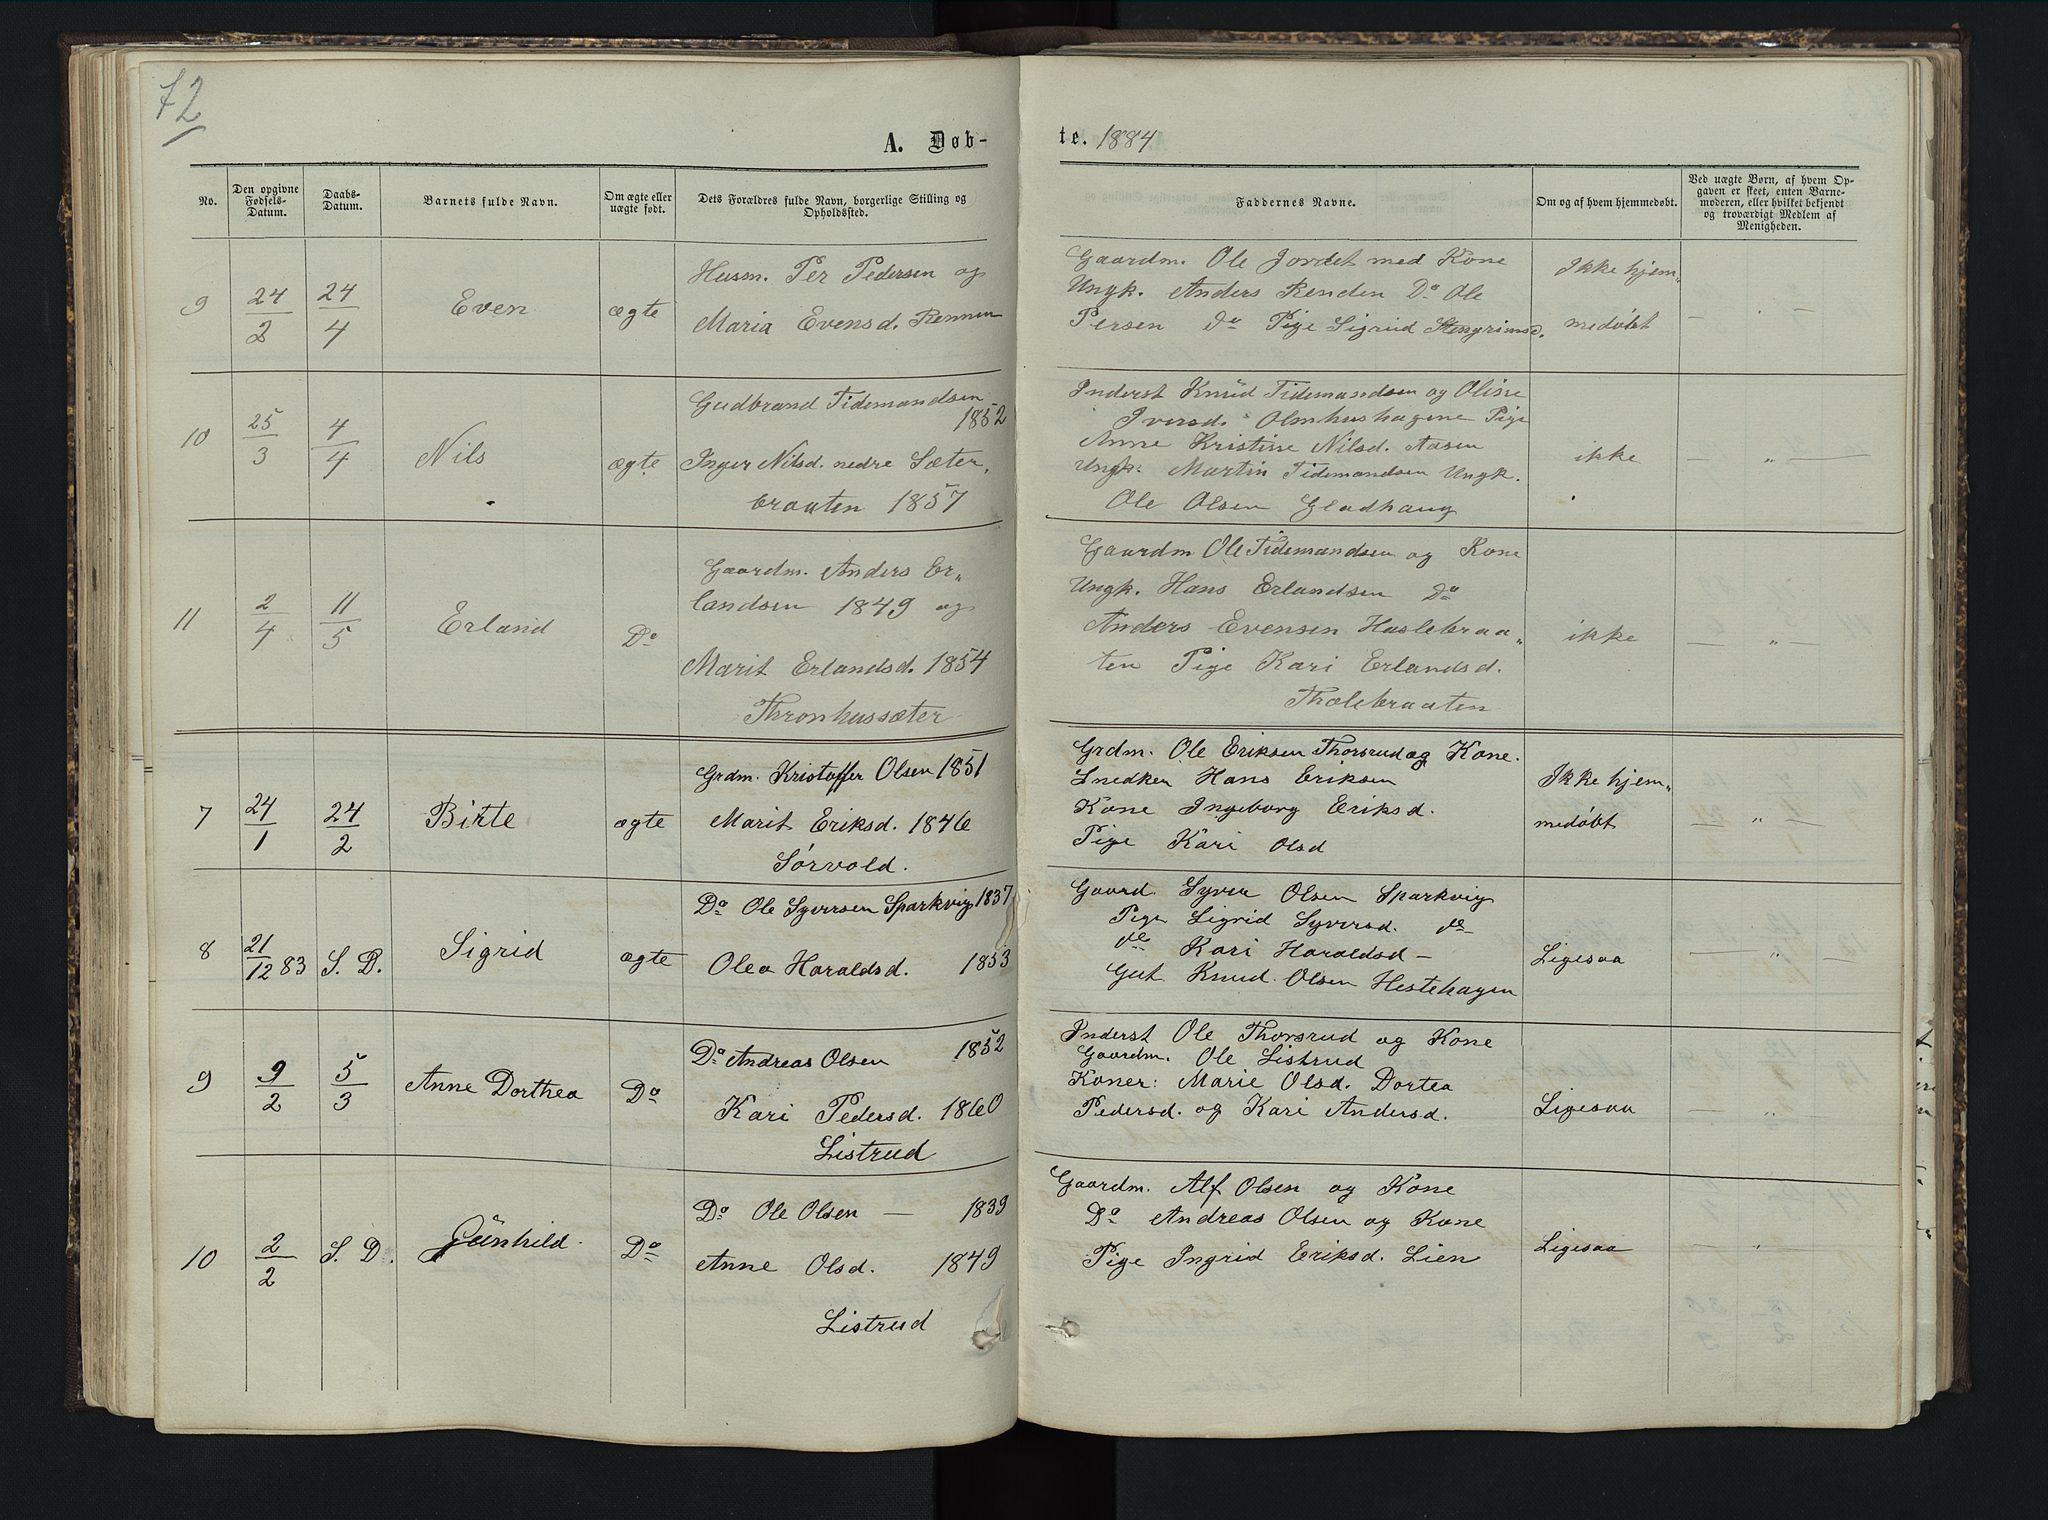 72
A. Døb-
te. 1884
No.
Den opgivne Fødsels-Datum.
Daabs-Datum.
Barnets fulde Navn.
Om ægte eller uægte født.
Dets Forældres fulde Navn, borgerlige Stilling og Opholdssted.
Faddernes Navne.
Om og af hvem hjemmedøbt.
Ved uægte Børn, af hvem Opgaven er skeet, enten Barnemoderen, eller hvilket bekjendt og troværdigt Medlem af Menigheden.
9
24/2
24/4
Even
ægte
Husm. Per Pedersen og
Maria Evensd. Rennen
Gaardm. Ole Jordet med Kone
Ungk. Anders Renden Do Ole
Persen do Pige Sigrid Stengrimsd.
Ikke hjem„
medøbt
— „ —
10
25/3
4/4
Nils
ægte
Gudbrand Tidemandsen
1852
Inger Nilsd. nedre Sæter„
braaten 1857
Inderst Knud Tidemandsen og Oline
Iversd. Olmhushagene Pige
Anne Kristine Nilsd. Aasen
Ungk. Martin Tidemandsen Ungk.
Ole Olsen Gladhaug
ikke
— „ —
11
2/4
11/5
Erland
Do
Gaardm. Anders Er„
landsen 1849 og
Marit Erlandsd. 1854
Thronhussæter
Gaardm Ole Tidemandsen og Kone
Ungk. Hans Erlandsen Do
Anders Evensen Haslebraa„
ten Pige Kari Erlandsd.
Thölebraaten
ikke
— „ —
7
24/1
24/2
Birte
ægte
Grdm. Kristoffer Olsen 1851
Marit Eriksd. 1846
Sørvold.
Grdm. Ole Eriksen Thorsrud og Kone.
Snedker Hans Eriksen
Kone Ingeborg Eriksd.
Pige Kari Olsd
Ikke hjem„
medøbt
— „ —
8
21/12 83
S. D.
Sigrid
ægte
Do Ole Syversen Sparkvig 1837
Olea Haraldsd. 1853
Gaard. Syver Olsen Sparkvig
Pige Sigrid Syversd. do
do Kari Haraldsd —
Gut Knud Olsen Hestehagen
Ligesaa
— „ —
9
9/2
5/3
Anne Dorthea
Do
Do Andreas Olsen 1852
Kari Pedersd. 1860
Listrud
Inderst Ole Thorsrud og Kone
Gaardm. Ole Listrud
Koner: Marie Olsd. Dortea
Pedersd. og Kari Andersd.
Ligesaa
— „ —
10
2/2
S. D.
Gunhild.
Do
Do Ole Olsen — 1839
Anne Olsd. 1849
Listrud
Gaardm. Alf Olsen og Kone
Do Andreas Olsen og Kone
Pige Ingrid Eriksd. Lien
Ligesaa
— „